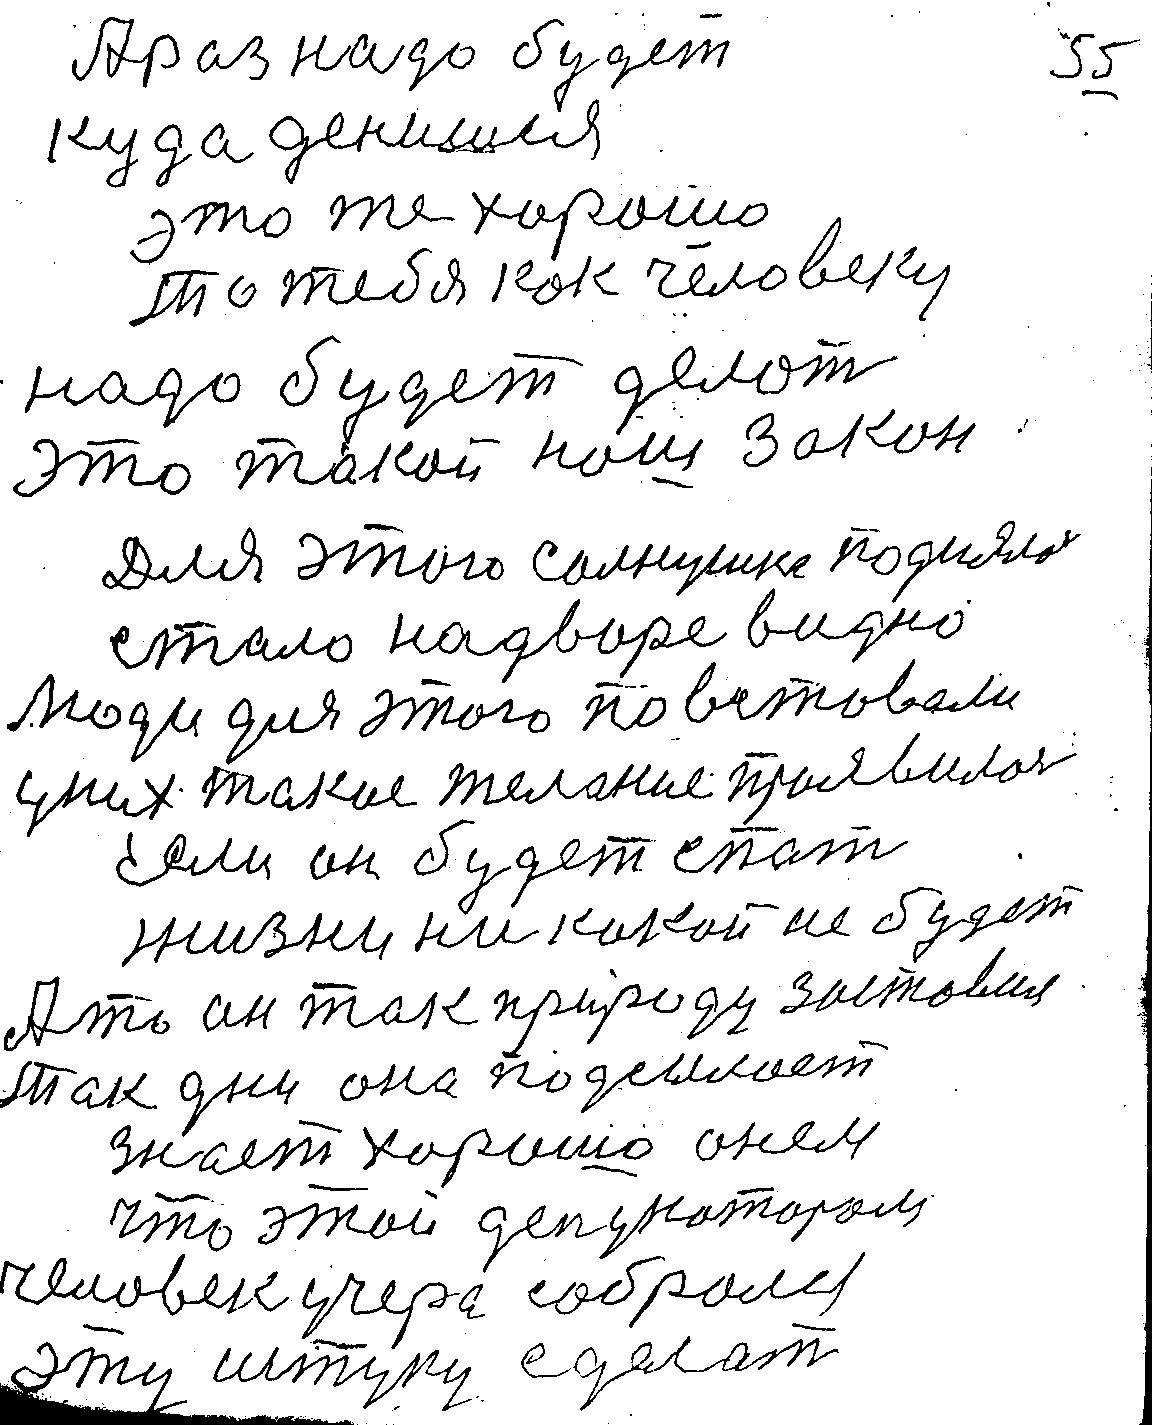 55
А раз надо будет
куда денишся
это те хорошо
то тебя кок человеку
надо будет делот
это такой нош закон
Для этого солнушка поднялос
стало надворе видно
Люди для этого повстовали
уних такое желание проявилос
Если он будет спат
жизни ни какой не будет
А то он так природу зостовил
так дни она подсылоет
знает хорошо онем
что этой
человек учера собролся
эту штуку сделат